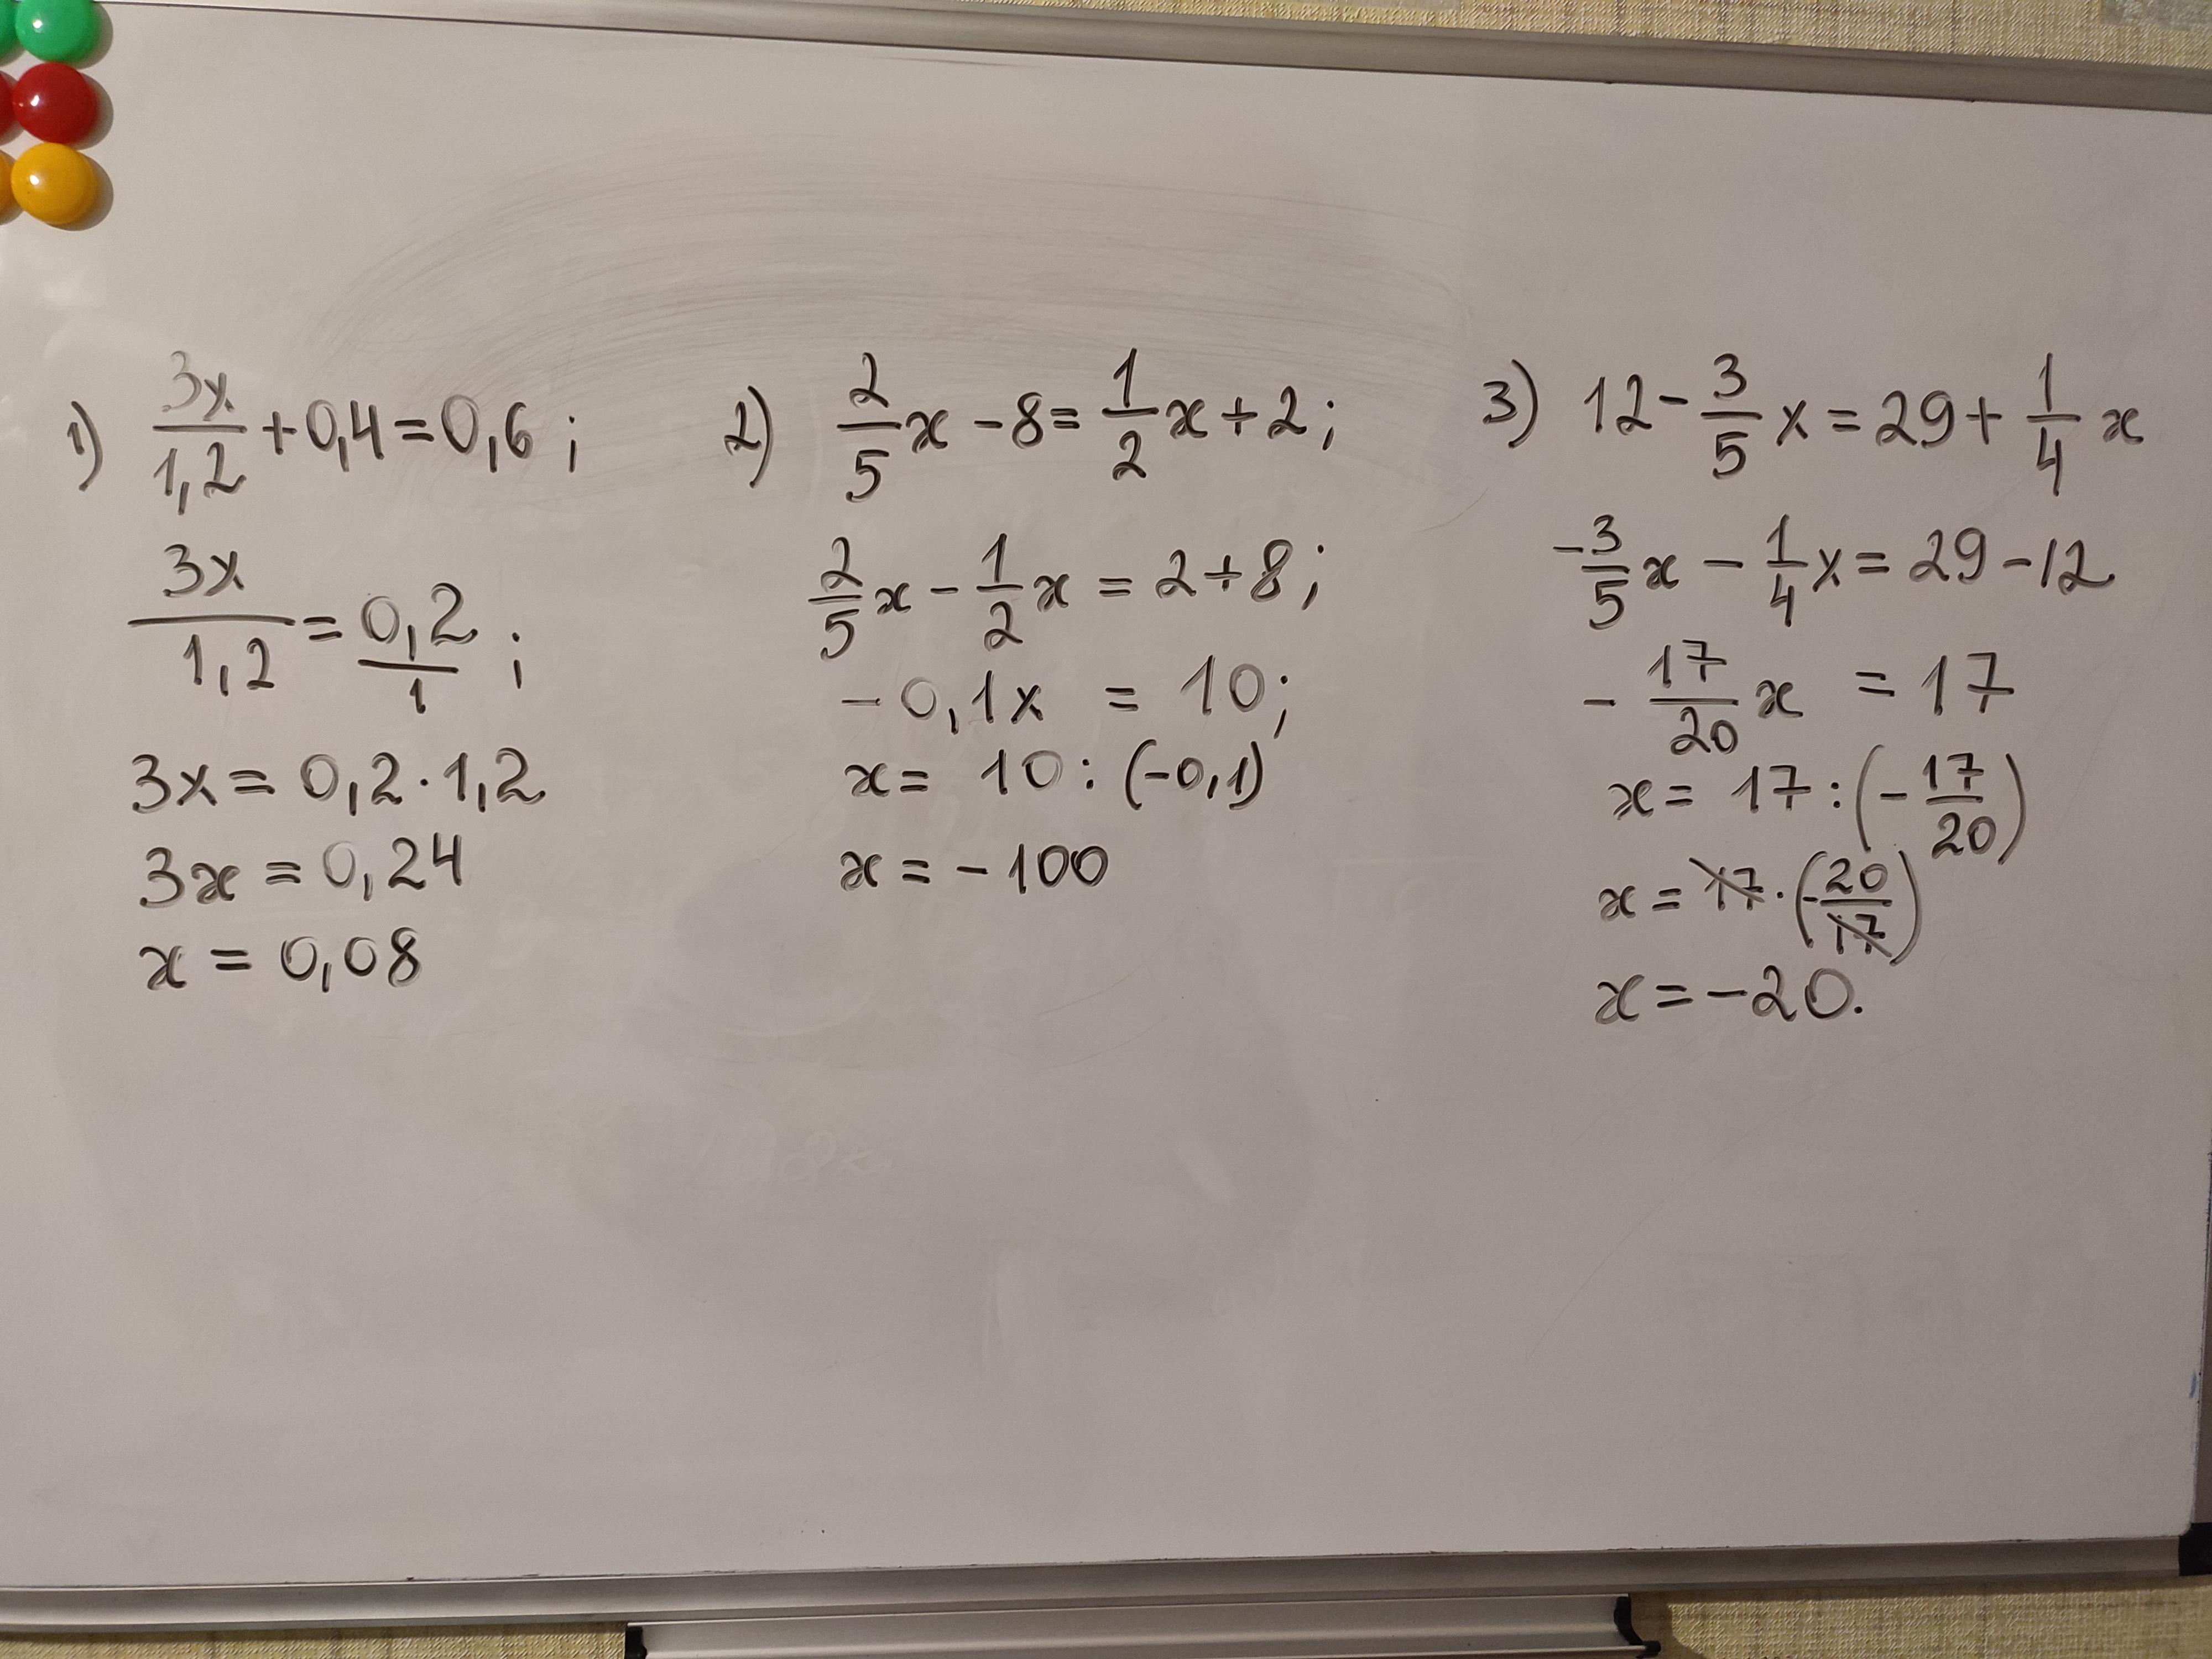 1) 3x/1,2 + 0,4 = 0,6 ;
3x/1,2 = 0,2/1 ;
3x = 0,2 · 1,2
3x = 0,24
x = 0,08
2) 2/5 x - 8 = 1/2 x + 2 ;
2/5 x - 1/2 x = 2 + 8 ;
- 0,1x = 10 ;
x = 10 : (-0,1)
x = - 100
3) 12 - 3/5 x = 29 + 1/4 x
-3/5 x - 1/4 x = 29 - 12
- 17/20 x = 17
x = 17 : (- 17/20)
x = 17 · (- 20/17)
x = - 20.